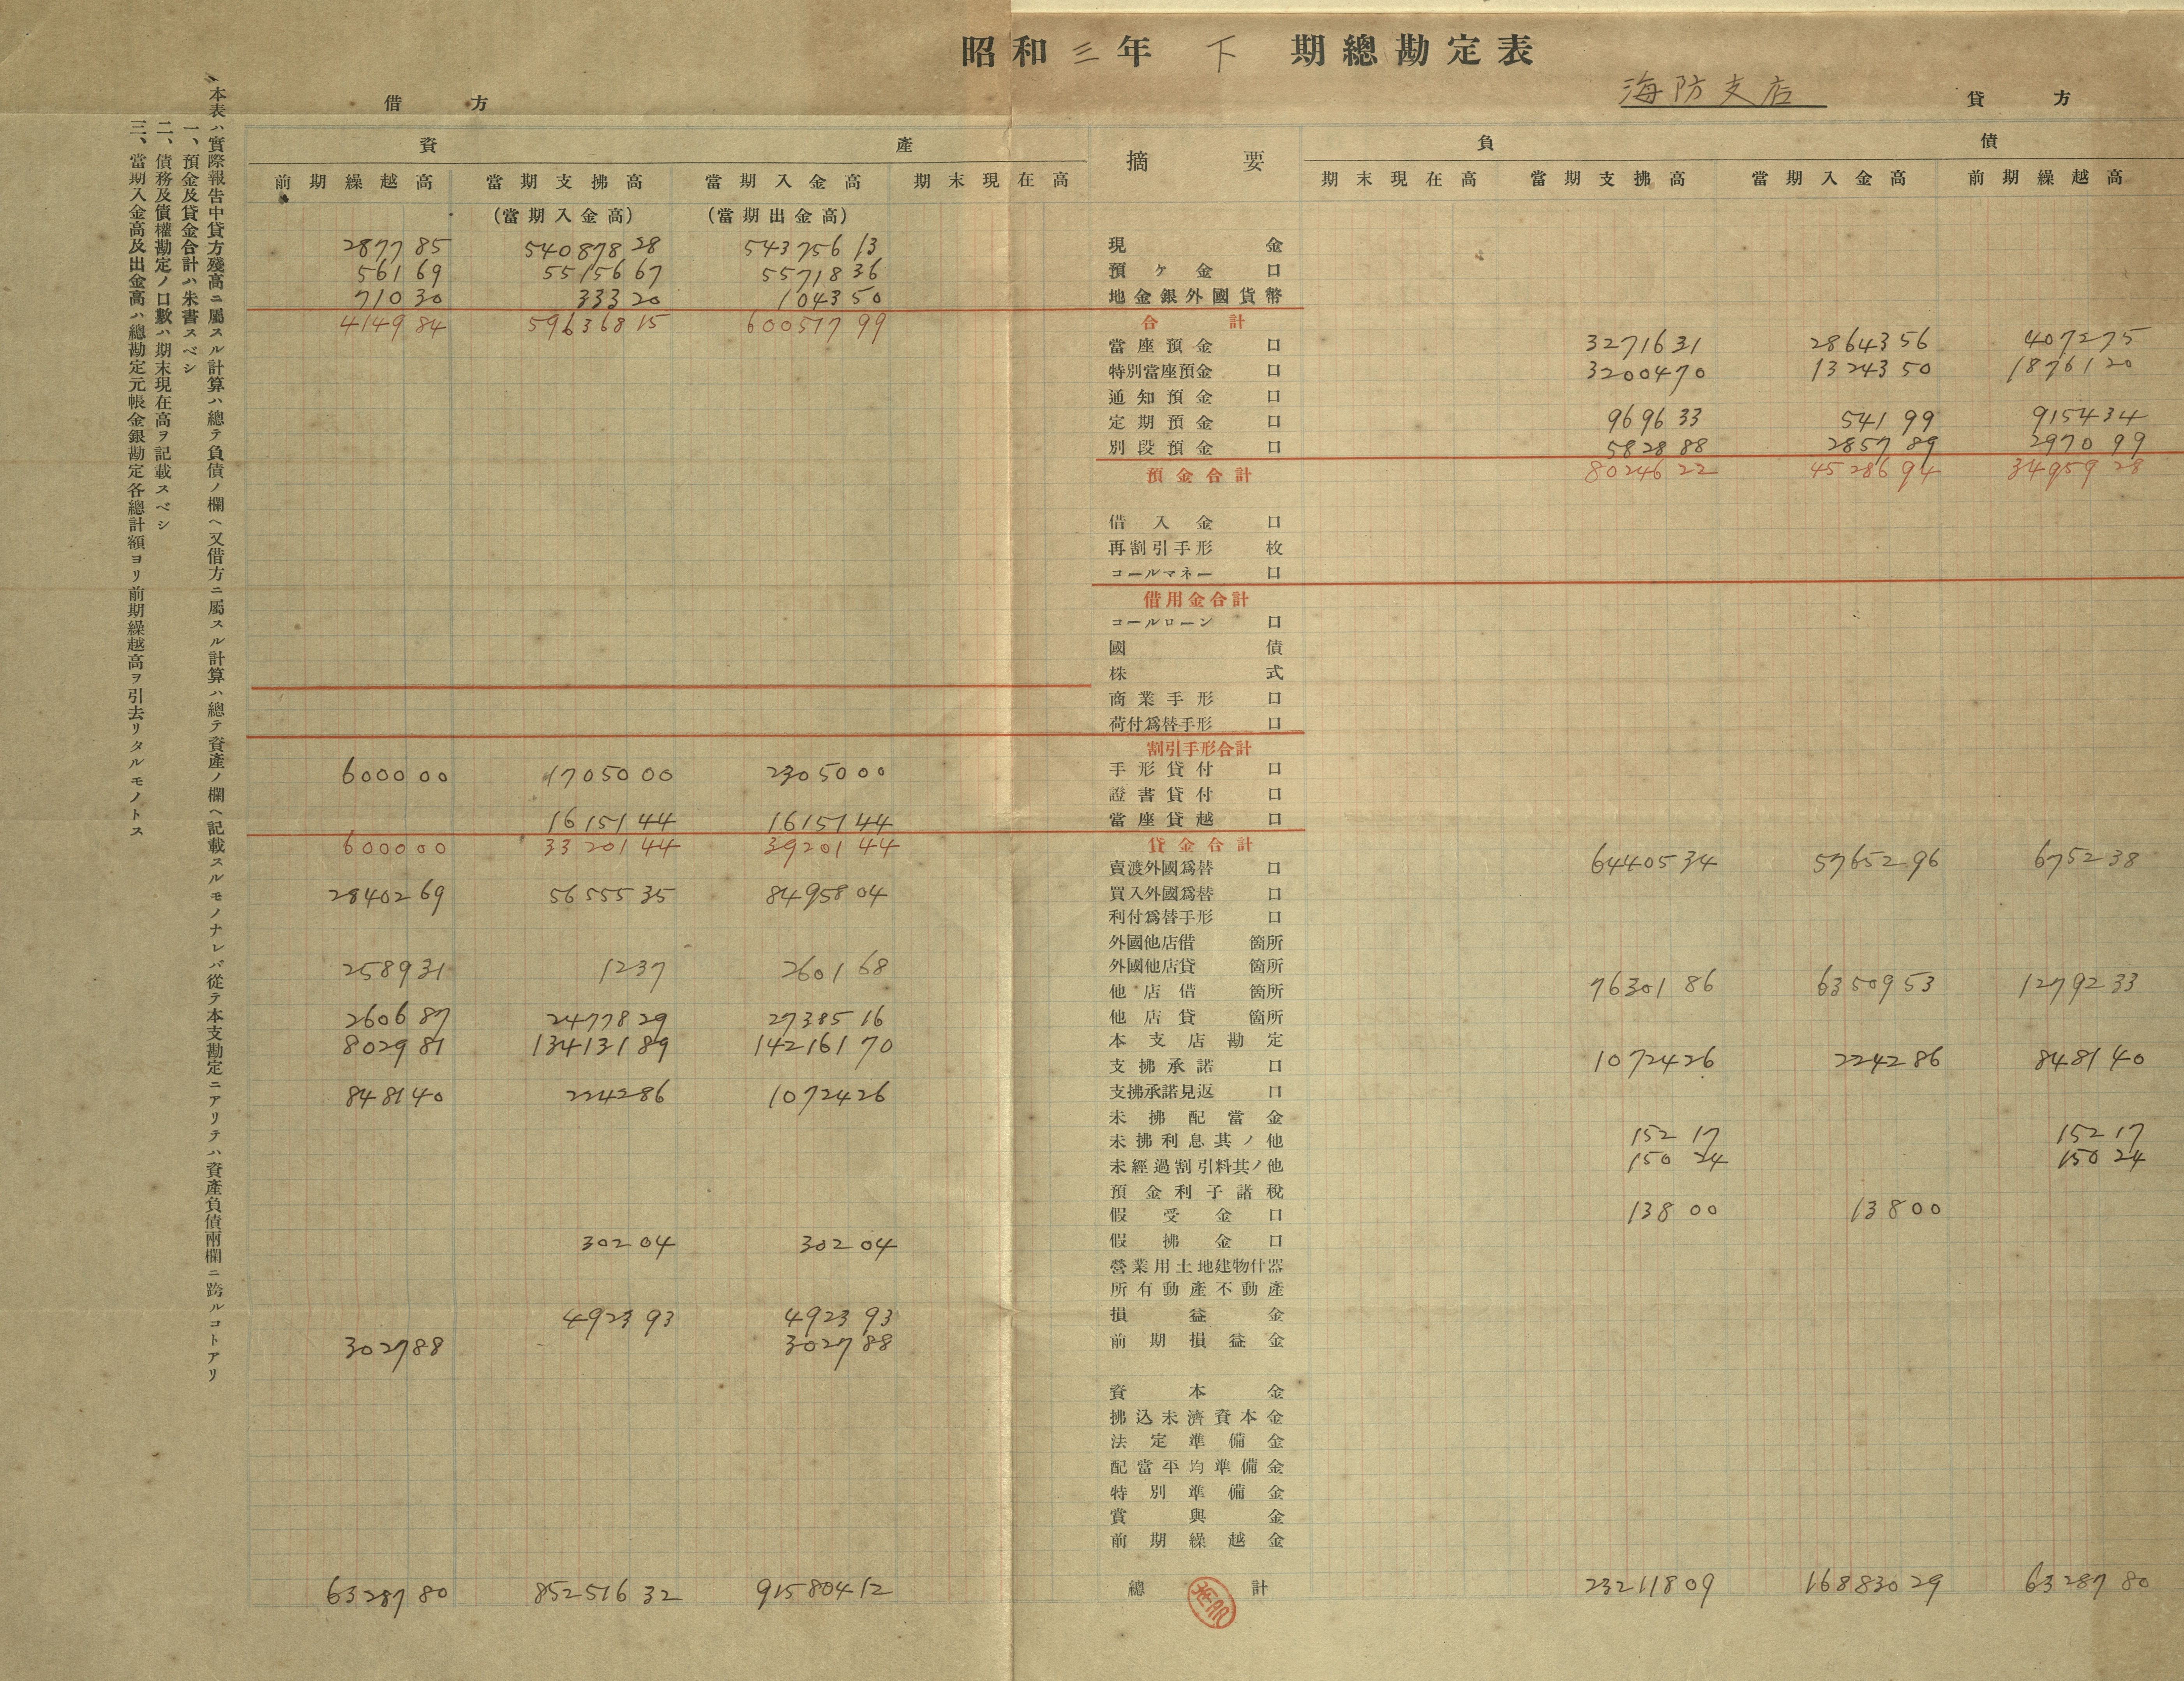 昭和三年 下 期總勘定表
海防支店
借方
貸方
資產
摘要
負債
前期繰越高 當期支拂高 當期入金高 期末現在高
期末現在高 當期支拂高 當期入金高 前期繰越高
(當期入金高) (當期出金高)
2877 85 540878 28 543756 13 現金
561 69 55156 67 55718 36 預ヶ金 口
710 30 333 20 1043 50 地金銀外國貨幣
4149 84 596368 15 600517 99 合計
當座預金 口 32716 31 28643 56 4072 75
特別當座預金 口 32004 70 13243 50 18761 20
通知預金 口
定期預金 口 9696 33 541 99 9154 34
別段預金 口 5828 88 2857 89 2970 99
預金合計 80246 22 45286 94 34959 28
借入金 口
再割引手形 枚
コールマネー 口
借用金合計
コールローン 口
國債
株式
商業手形 口
荷付爲替手形 口
割引手形合計
6000 00 17050 00 23050 00 手形貸付 口
證書貸付 口
16151 44 16151 44 當座貸越 口
6000 00 33201 44 39201 44 貸金合計
賣渡外國爲替 口 64405 34 57652 96 6752 38
28402 69 56555 35 84958 04 買入外國爲替 口
利付爲替手形 口
外國他店借 箇所
2589 31 12 37 2601 68 外國他店貸 箇所
他店借 箇所 76301 86 63509 53 12792 33
2606 87 24778 29 27385 16 他店貸 箇所
8029 81 134131 89 142161 70 本支店勘定
支拂承諾 口 10724 26 2242 86 8481 40
8481 40 2242 86 10724 26 支拂承諾見返 口
未拂配當金
未拂利息其ノ他 152 17 152 17
未經過割引料其ノ他 150 24 150 24
預金利子諸稅
假受金 口 138 00 138 00
302 04 302 04 假拂金 口
營業用土地建物什器
所有動產不動產
4923 93 4923 93 損益金
3027 88 3027 88 前期損益金
資本金
拂込未濟資本金
法定準備金
配當平均準備金
特別準備金
賞與金
前期繰越金
63287 80 852516 32 915804 12 總計 232118 09 168830 29 63287 80
本表ハ實際報告中貸方殘高ニ屬スル計算ハ總テ負債ノ欄ヘ又借方ニ屬スル計算ハ總テ資產ノ欄ヘ記載スルモノナレバ從テ本支勘定ニアリテハ資產負債兩欄ニ跨ルコトアリ
一、預金及貸金合計ハ朱書スベシ
二、債務及債權勘定ノ口數ハ期末現在高ヲ記載スベシ
三、當期入金高及出金高ハ總勘定元帳金銀勘定各總計額ヨリ前期繰越高ヲ引去リタルモノトス